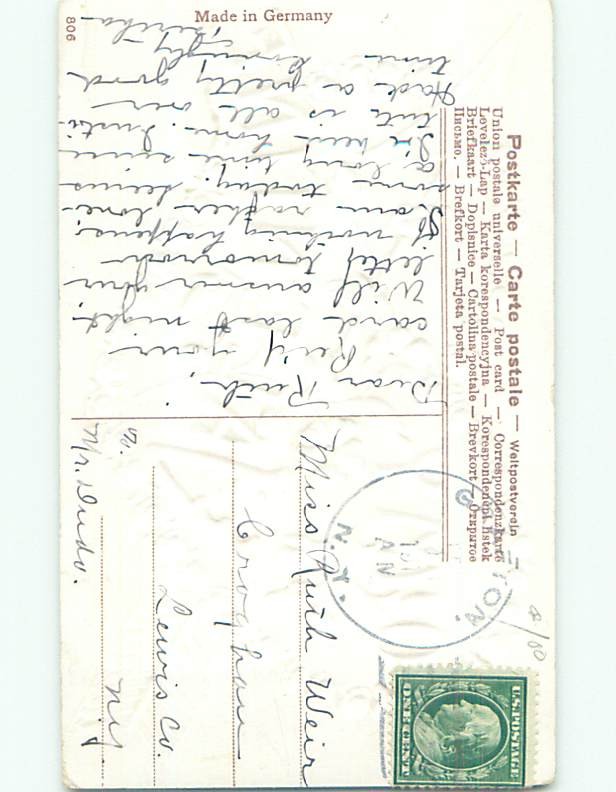 Made in Germany
806
Postkarte — Carte postale — Weltpostverein —
Union postale universelle — Post card — Correspondenzkarte
Levelező-Lap — Karta korespondencyjna — Korespondenční lístek
Briefkaart — Dopisnice — Cartolina postale — Brevkort — Открытое
Письмо. — Brefkort — Tarjeta postal.
Dear Ruth,
Rec'd your
card last night
Will answer your
letter tomorrow
if nothing happens.
I am rather lone-
some today. seems
a long time since
I've been home. Insti-
tute is all over
Had a pretty good
time
Lovingly
Miss Ruth Weir
Croghan
Lewis Co.
N.Y.
%
Mr.
N.Y.
U.S. POSTAGE
ONE CENT